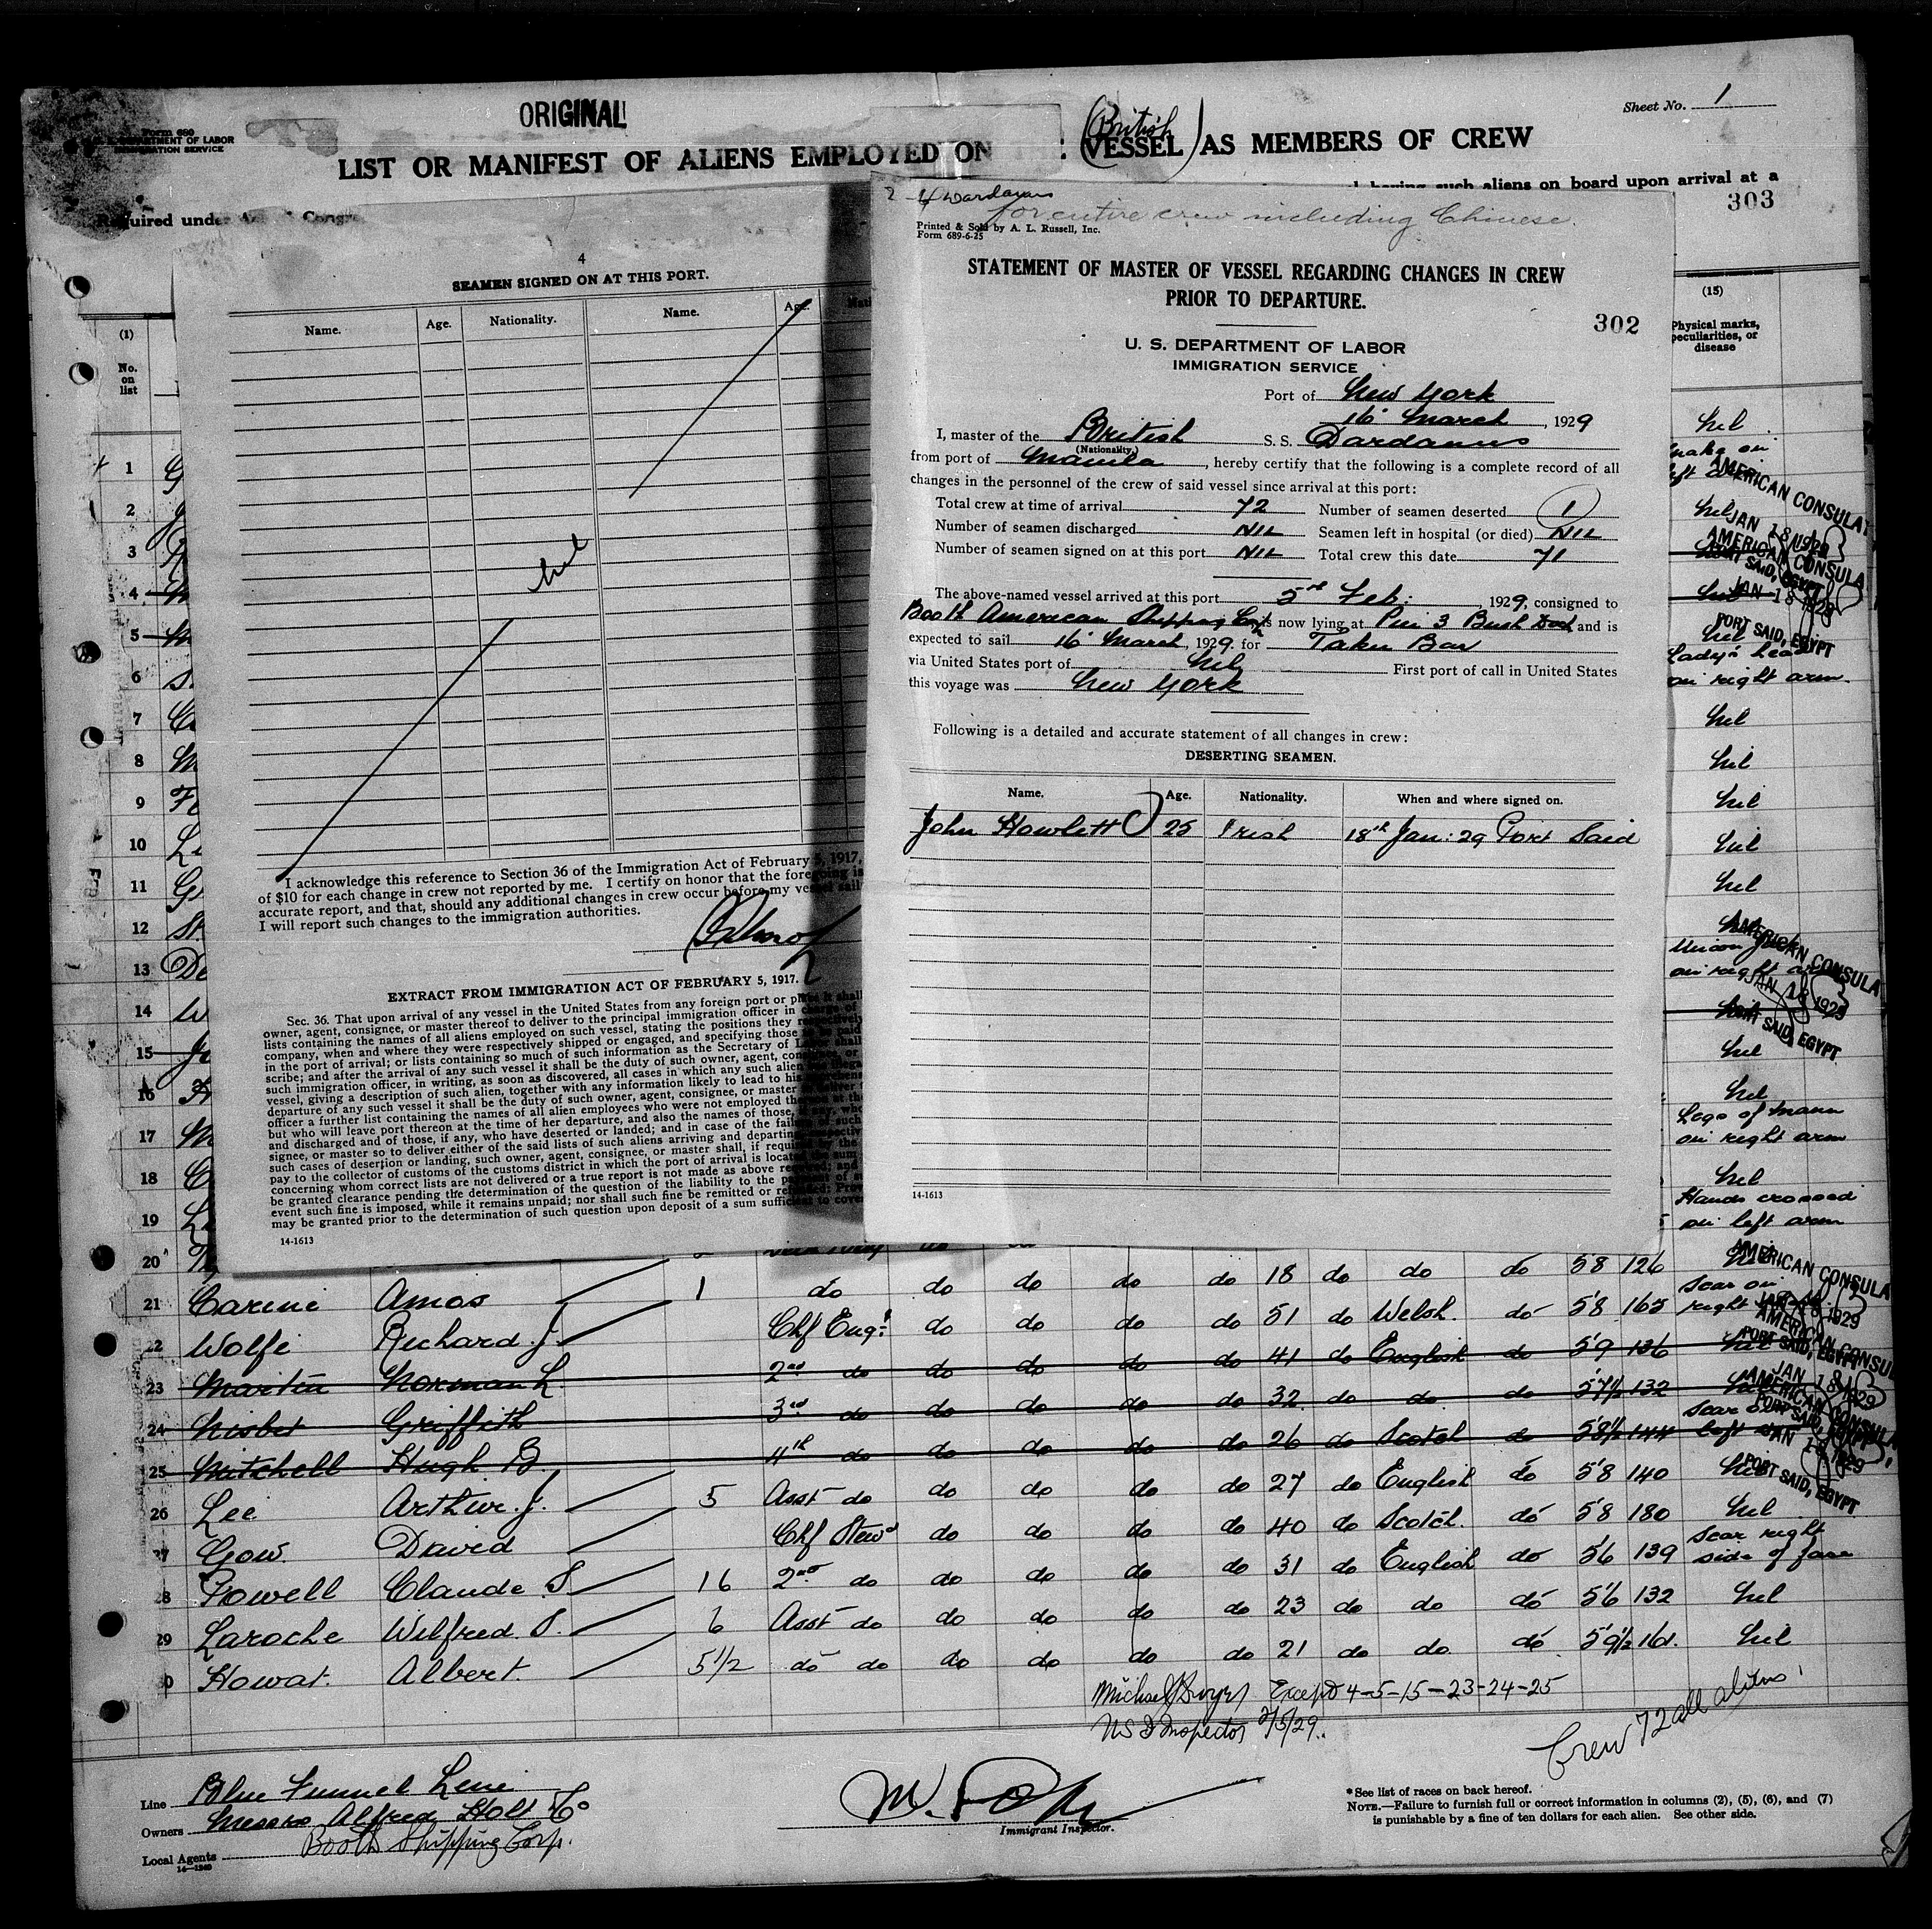 ORIGINAL
Sheet No. 1
Form 680
DEPARTMENT OF LABOR
IMMIGRATION SERVICE
(British
LIST OR MANIFEST OF ALIENS EMPLOYED ON : VESSEL) AS MEMBERS OF CREW
Required under Act of Congre
having such aliens on board upon arrival at a
303
4
SEAMEN SIGNED ON AT THIS PORT.
Name. Age. Nationality. Name. Age. Nati
nil
I acknowledge this reference to Section 36 of the Immigration Act of February 5, 1917,
of $10 for each change in crew not reported by me. I certify on honor that the foregoing is
accurate report, and that, should any additional changes in crew occur before my vessel sail
I will report such changes to the immigration authorities.
EXTRACT FROM IMMIGRATION ACT OF FEBRUARY 5, 1917.
Sec. 36. That upon arrival of any vessel in the United States from any foreign port or place it shall
owner, agent, consignee, or master thereof to deliver to the principal immigration officer in charge of
lists containing the names of all aliens employed on such vessel, stating the positions they respectively
company, when and where they were respectively shipped or engaged, and specifying those to be paid
in the port of arrival; or lists containing so much of such information as the Secretary of Labor shall
scribe; and after the arrival of any such vessel it shall be the duty of such owner, agent, consignee, or
such immigration officer, in writing, as soon as discovered, all cases in which any such alien has illegal
vessel, giving a description of such alien, together with any information likely to lead to his apprehens
departure of any such vessel it shall be the duty of such owner, agent, consignee, or master to deliver
officer a further list containing the names of all alien employees who were not employed thereon at the
but who will leave port thereon at the time of her departure, and also the names of those, if any, who
and discharged and of those, if any, who have deserted or landed; and in case of the failure of such
signee, or master so to deliver either of the said lists of such aliens arriving and departing, respectiv
such cases of desertion or landing, such owner, agent, consignee, or master shall, if required by the
pay to the collector of customs of the customs district in which the port of arrival is located the sum
concerning whom correct lists are not delivered or a true report is not made as above required; and
be granted clearance pending the determination of the question of the liability to the payment of su
event such fine is imposed, while it remains unpaid; nor shall such fine be remitted or refunded: Prov
may be granted prior to the determination of such question upon deposit of a sum sufficient to cover
14-1613
Dardanus
for entire crew including Chinese.
Printed & Sold by A. L. Russell, Inc.
Form 689-6-25
STATEMENT OF MASTER OF VESSEL REGARDING CHANGES IN CREW
PRIOR TO DEPARTURE.
302
U. S. DEPARTMENT OF LABOR
IMMIGRATION SERVICE
Port of New York
16 March, 1929
I, master of the British S. S. Dardanus
(Nationality.)
from port of Manila, hereby certify that the following is a complete record of all
changes in the personnel of the crew of said vessel since arrival at this port:
Total crew at time of arrival 72 Number of seamen deserted 1
Number of seamen discharged NIL Seamen left in hospital (or died) NIL
Number of seamen signed on at this port NIL Total crew this date 71
The above-named vessel arrived at this port 5th Feb: , 1929, consigned to
Booth American Shipping Corp is now lying at Pier 3 Bush Dock and is
expected to sail 16 March, 1929. for Taku Bar
via United States port of Nil First port of call in United States
this voyage was New York
Following is a detailed and accurate statement of all changes in crew:
DESERTING SEAMEN.
Name. Age. Nationality. When and where signed on.
John Howlett 25 Irish 18th Jan: 29 Port Said
14-1613
(1)
No. on list
(15)
Physical marks, peculiarities, or disease
1
2
3
4
5
6
7
8
9
10
11
12
13
14
15
16
17
18
19
20
nil
nil
nil
Lady's head
on right arm.
nil
nil
nil
nil
nil
Union Jack
on right arm
nil
nil
Legs of mann
on right arm
nil
Hands crossed
on left arm
AMERICAN CONSULA
JAN 18 1929
PORT SAID, EGYPT
21 Carine Amos 1 do do do do do 18 do do do 5'8 126
22 Wolfe Richard J. Chf Engr do do do do 51 do Welsh. do 5'8 165 Scar on right
23 Martin Norman L. 2nd do do do do do 41 do English do 5'9 136 nil
24 Nisbet Griffith 3rd do do do do do 32 do do do 5'7½ 132 nil
25 Mitchell Hugh B. 4th do do do do do 26 do Scotch do 5'8½ 144 Scar on left
26 Lee Arthur J. 5 Asst do do do do do 27 do English do 5'8 140 nil
27 Gow David Chf Stewd do do do do 40 do Scotch. do 5'8 180 nil
28 Powell Claude S 16 2nd do do do do do 31 do English do 5'6 139 Scar right side of face
29 Laroche Wilfred. S. 6 Asst do do do do do 23 do do do 5'6 132 nil
30 Howat. Albert. 5½ do do do do do do 21 do do. do 5'9½ 161. nil
Except 4-5-15-23-24-25
US I Inspector 2/5/29.
Crew 72 all aliens
Line Blue Funnel Line
Owners Messrs Alfred Holt & Co
Local Agents Booth Shipping Corp.
14-1240
Immigrant Inspector.
*See list of races on back hereof.
NOTE.—Failure to furnish full or correct information in columns (2), (5), (6), and (7)
is punishable by a fine of ten dollars for each alien. See other side.